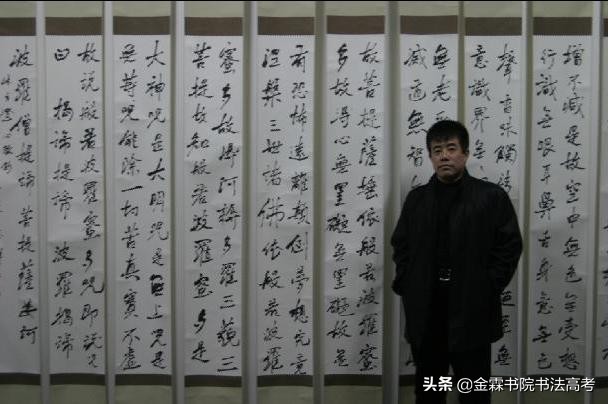 增不减是故空中無色無受想
行識無眼耳鼻舌身意無色
聲香味觸法
意識界無
無老
滅道無智
故菩提薩埵依般若波羅蜜
多故得心無罣礙無罣礙故無
有恐怖遠離顛倒夢想究竟
涅槃三世諸佛依般若波羅
蜜多故得阿耨多羅三藐三
菩提故知般若波羅蜜多是
大神咒是大明咒是無上咒是
無等咒能除一切苦真實不虛
故說般若波羅蜜多咒即說咒
曰揭諦揭諦波羅揭諦
波羅僧揭諦菩提薩婆訶
头条 @金霖书院书法高考